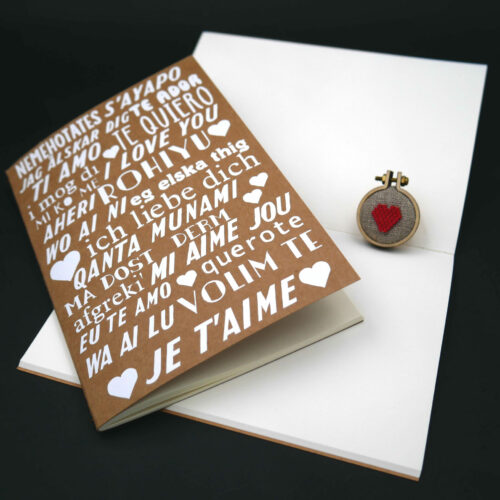 NEMEHOTATES S'AYAPO
JAG ÄLSKAR DIG TE ADOR
TI AMO JE QUIERO
i mog di I LOVE YOU
MI KO ME ROHIYU
AHERI eg elska thig
WO AI NI ich liebe dich
QANTA MUNAMI
MA DOST DERM
afgreki MI AIME JOU
EU TE AMO querote
WA AI LU VOLIM TE
JE T'AIME